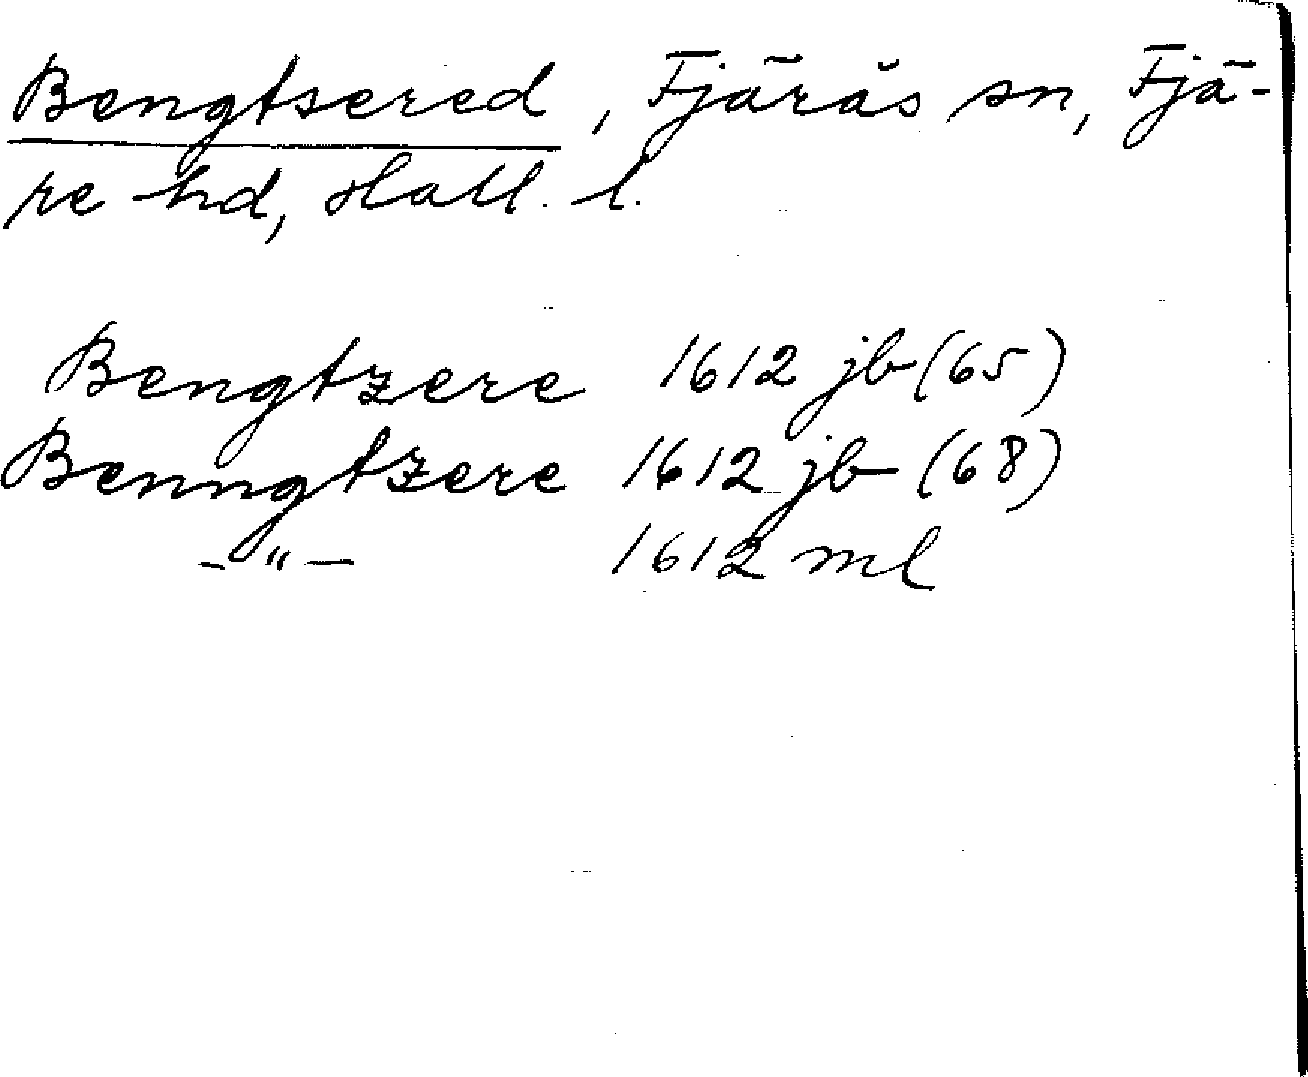 Bengtsered, Fjärås sn, Fjä-
re hd, Hall. l.
Bengtzere 1612 jb (65)
Benngtzere 1612 jb (68)
-"- 1612 ml